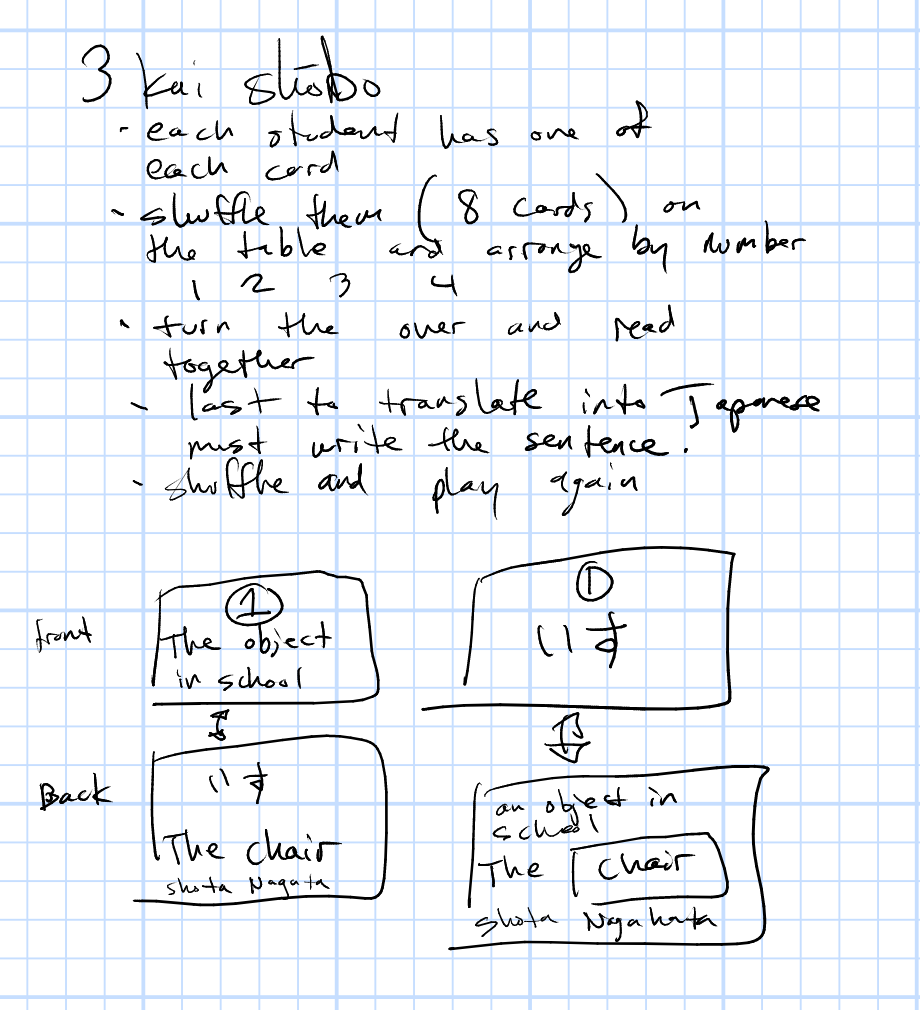 3 kai shōbo
• each student has one of
each card
• shuffle them (8 cards) on
the table and arrange by number
1 2 3 4
• turn the over and read
together
• last to translate into Japanese
must write the sentence.
• shuffle and play again
front
①
The object
in school
①
いす
Back
いす
The chair
Shota Nagata
an object in
school
The chair
Shota Nagahata